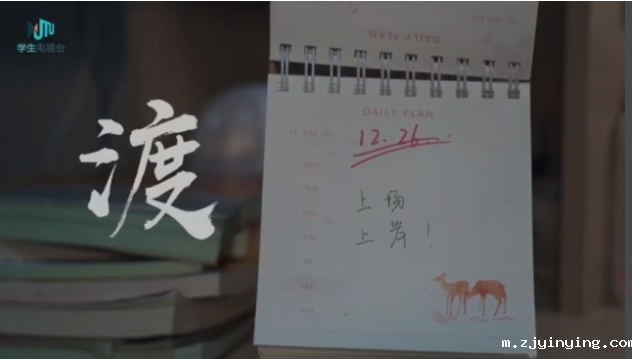 学生电视台
渡
DAILY PLAN
DAILY PLAN
YY MM DD
12.26
MON
TUE
WED
THU
FRI
SAT
SUN
上场
上岸！
m.zjyinying.com